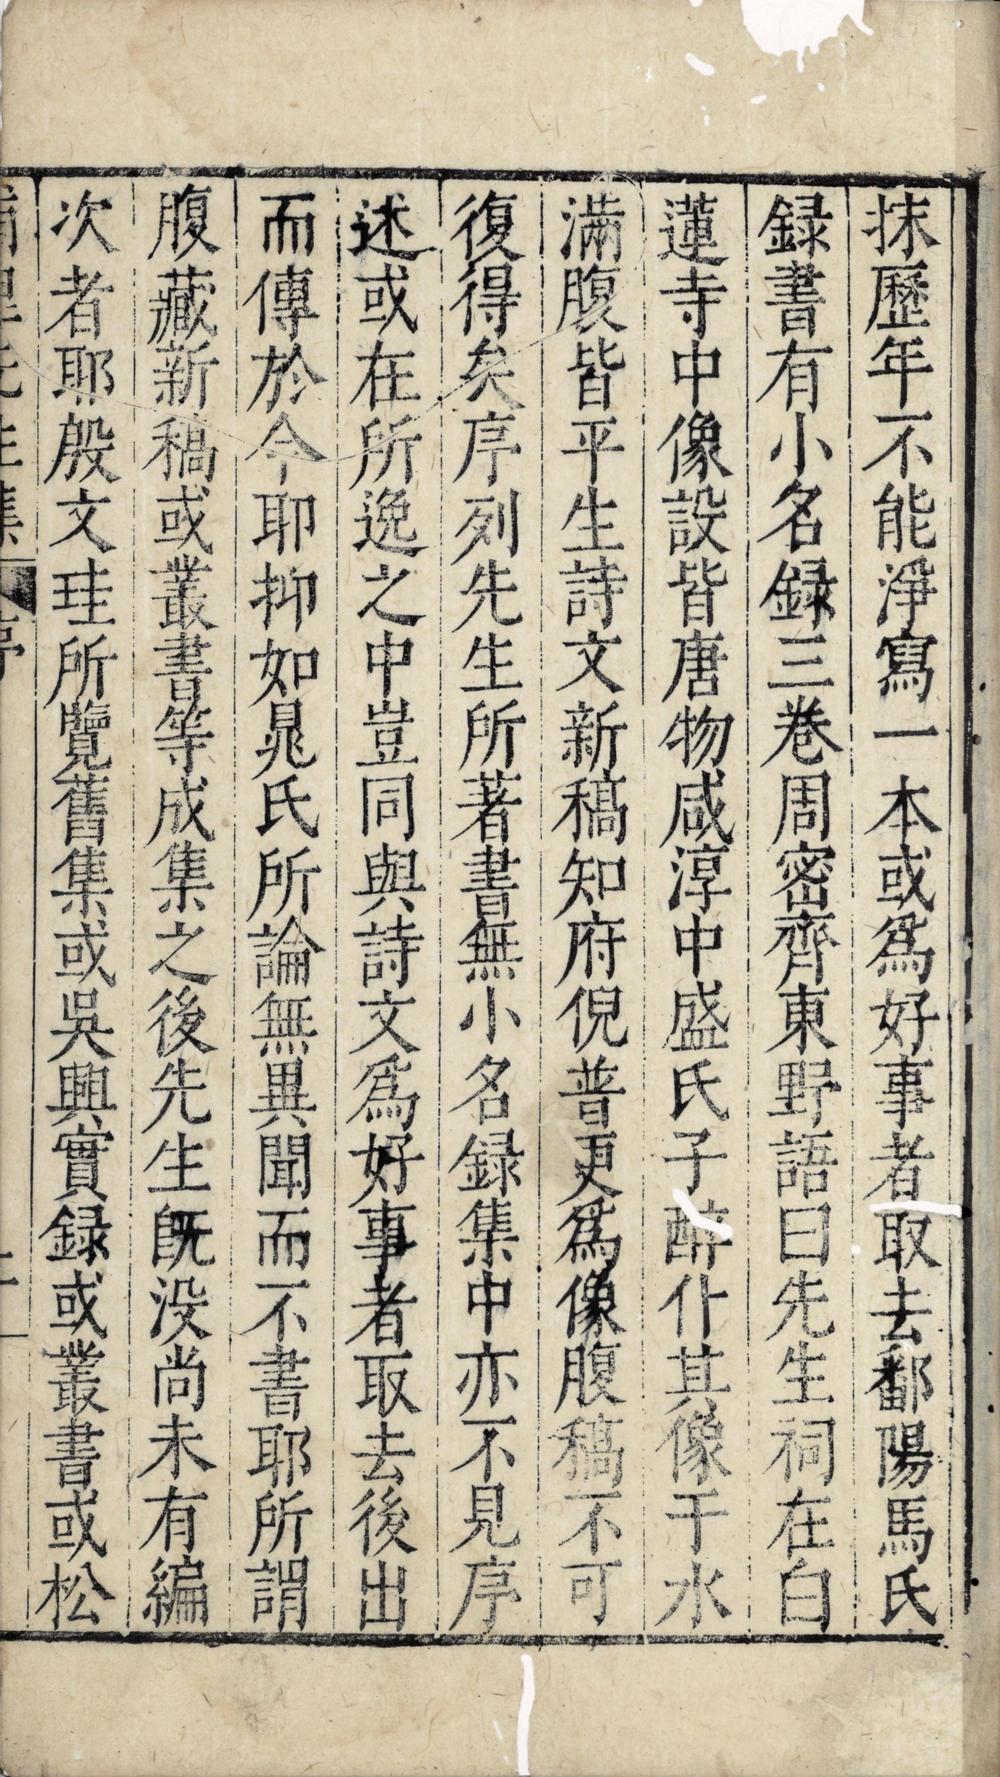 抹歷年不能淨寫一本或爲好事者取去鄱陽馬氏
録書有小名録三巻周密齊東野語曰先生祠在白
蓮寺中像設皆唐物咸淳中盛氏子醉仆其像于水
滿腹皆平生詩文新稿知府倪普更爲像腹稿不可
復得矣序列先生所著書無小名録集中亦不見序
述或在所逸之中豈同與詩文爲好事者取去後出
而傳於今耶抑如晁氏所論無異聞而不書耶所謂
腹藏新稿或叢書等成集之後先生旣没尚未有編
次者耶殷文珪所覽舊集或吳興實録或叢書或松